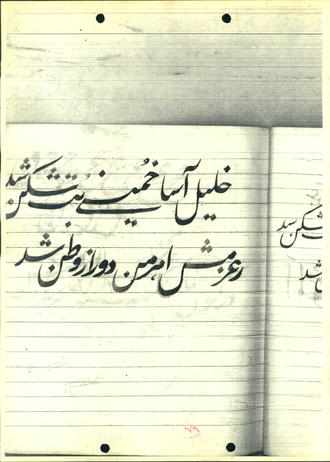 خلیل آسا خمینی بت شکن شد
زعزمش اهرمن دور از وطن شد
شکن شد
شد
۷۹